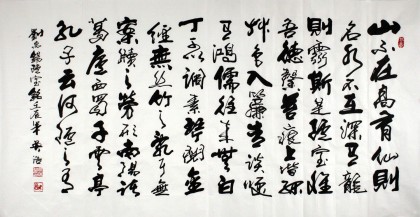 山不在高有仙則
名水不在深有龍
則靈斯是陋室惟
吾德馨苔痕上階緑
草色入簾青談笑
有鴻儒往來無白
丁可以調素琴閱金
經無絲竹之亂耳無
案牘之勞形南陽諸
葛廬西蜀子雲亭
孔子云何陋之有
劉禹錫陋室銘壬辰年